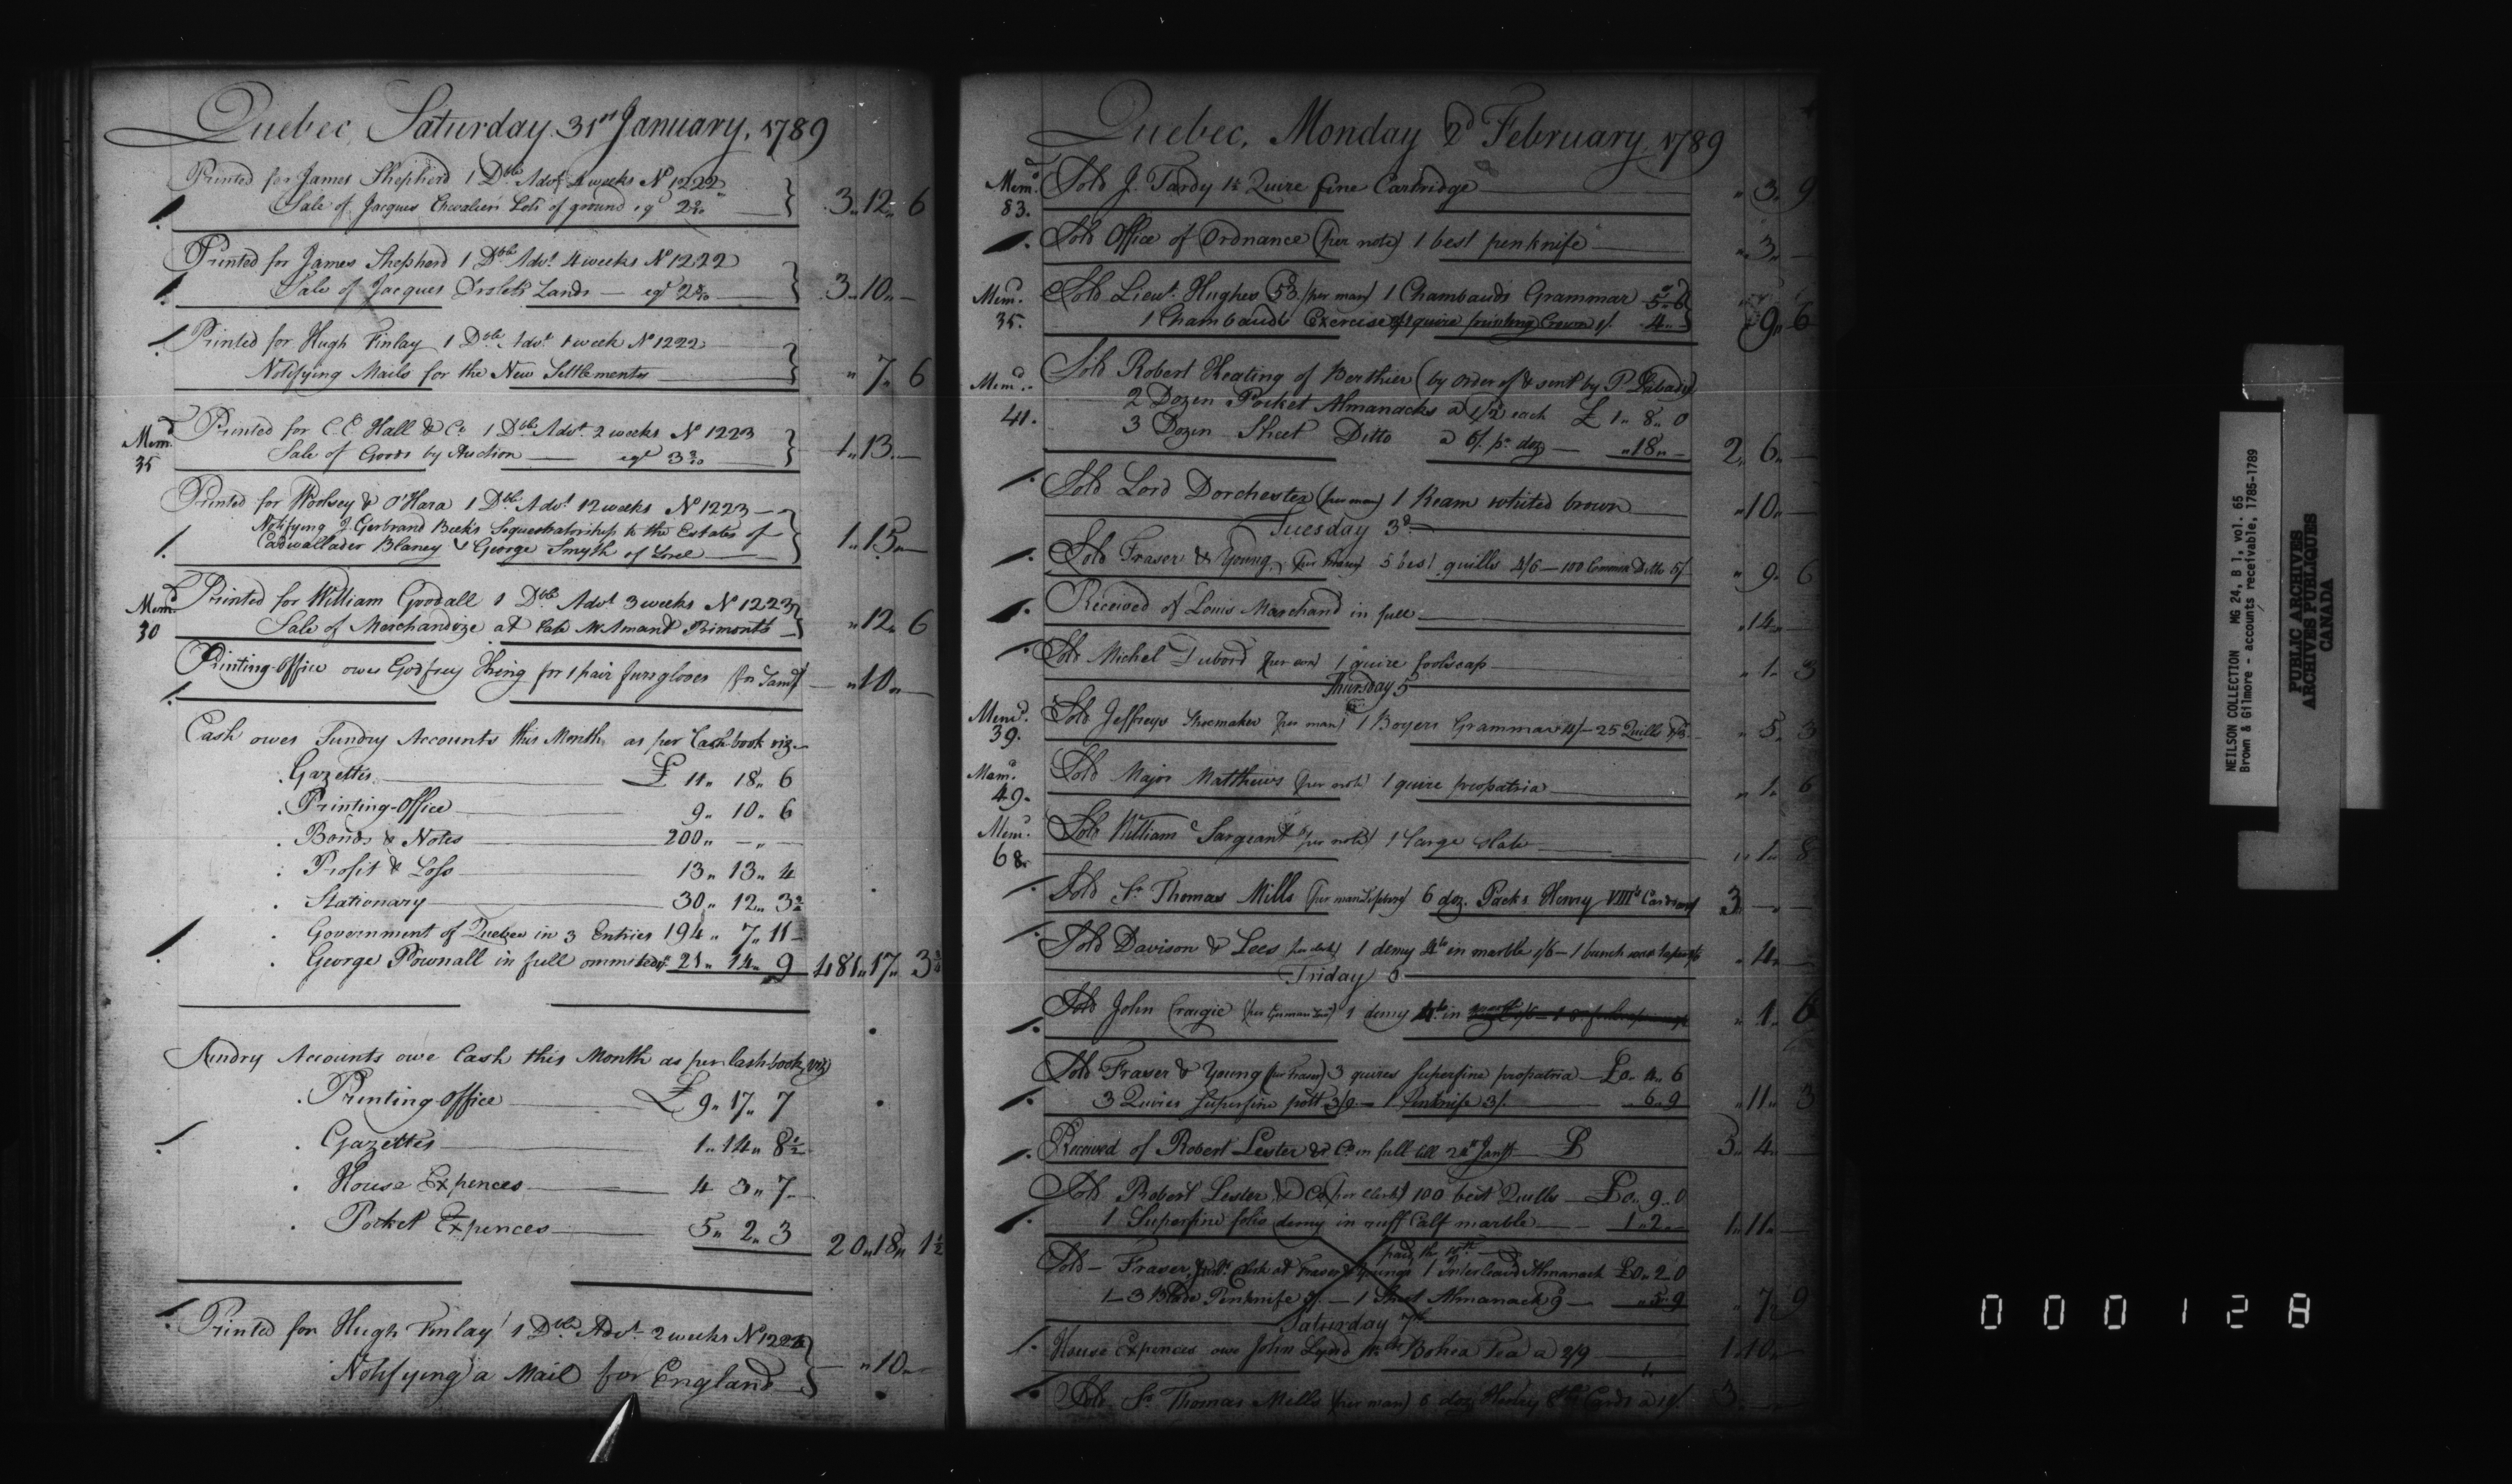 Quebec, Saturday 31st January, 1789
Printed for James Shepherd 1 Dble Advt 4 weeks No 1222
Sale of Jacques Chevaliers Lots of ground eql 3„ 12„ 6
Printed for James Shepherd 1 Dble Advt 4 weeks No 1222
Sale of Jacques Lands — eql 3„ 10„ —
Printed for Hugh Finlay 1 Dble Advt 1 week No 1222
Notifying Mails for the New Settlements „ 7„ 6
Memd. 35
Printed for C.C. Hall & Co 1 Dble Advt 2 weeks No 1223
Sale of Goods by Auction — eql 1„ 13„ —
Printed for Woolsey & O'Hara 1 Dble Advt 12 weeks No 1223
Notifying J. Gerbrand Beeks Sequestratorship to the Estates of
Cadwallader Blaney & George Smyth of Sorel 1„ 15„ —
Memd. 30
Printed for William Goodall 1 Dble Advt 3 weeks No 1223
Sale of Merchandize at late „ 12„ 6
Printing-Office owes Godfrey King for 1 pair furr gloves „ 10„ —
Cash owes Sundry Accounts this Month, as per Cash-book viz.
Gazettes £ 11„ 18„ 6
Printing-Office 9„ 10„ 6
Bonds & Notes 200„ —„ —
Profit & Loss 13„ 13„ 4
Stationary 30„ 12„ 3
Government of Quebec in 3 Entries 194„ 7„ 11
George Pownall in full ommitted 21„ 14„ 9 481„ 17„ 3
Sundry Accounts owe Cash this Month as per Cash-book, viz
Printing-Office £ 9„ 17„ 7
Gazettes 1„ 14„ 8½
House Expences 4 3„ 7
Pocket Expences 5„ 2„ 3 20„ 18„ 1½
Printed for Hugh Finlay 1 Dble Advt 2 weeks
Notifying a Mail for England „ 10„ —
Quebec, Monday 2d February, 1789
Memd. 83.
Sold J. Tardy 1½ Quire fine Cartridge „ 3„ 9
Sold Office of Ordnance (per note) 1 best penknife „ 3„ —
Memd. 35.
Sold Lieut. Hughes 53. (per man) 1 Chambauds Grammar 5„ 6
1 Chambauds Exercises 4„ — „ 9„ 6
Memd. 41.
Sold Robert Keating of Berthier (by order of & sent by P. Labadie)
2 Dozen Pocket Almanacks a 1/2 each £ 1„ 8„ 0
3 Dozen Sheet Ditto a 6/ pr doz — „ 18„ — 2„ 6„ —
Sold Lord Dorchester (per man) 1 Ream whited brown „ 10„ —
Tuesday 3d
Sold Fraser & Young, (per Fraser) 5 best quills 4/6 — 100 Common Ditto 5/ „ 9„ 6
Received of Louis Marchand in full „ 14„ —
Sold Michel Dubord (per son) 1 quire foolscap „ 1„ 3
Thursday 5
Memd. 39.
Sold Jeffreys Shoemaker (per man) 1 Boyers Grammar 4/ — 25 Quills 1/3 „ 5„ 3
Memd. 49.
Sold Major Matthews (per note) 1 quire propatria „ 1„ 6
Memd. 68.
Sold William Sargeant (per note) 1 large Slate „ 1„ 8
Sold Sr Thomas Mills (per man) 6 doz. Packs Henry VIIIth Cards 3„ —„ —
Sold Davison & Lees (per clerk) 1 demy 4to in marble 1/6 — 1 bunch „ 4„ —
Friday 6
Sold John Craigie 1 demy 4to in „ 1„ 6
Sold Fraser & Young (per Fraser) 3 quires superfine propatria £0„ 4„ 6
3 Quires superfine pott 3/9 — 1 Penknife 3/. 6„ 9 „ 11„ 3
Received of Robert Lester & Co in full till £ 3„ 4„ —
Sold Robert Lester & Co (per clerk) 100 best Quills £0„ 9„ 0
1 Superfine folio demy in ruff Calf marble 1„ 2„ — 1„ 11„ —
paid the
Sold — Fraser, Clerk at Fraser & Youngs 1 Interleaved Almanack £0„ 2„ 0
1 — 3 Blade Penknife — 1 Sheet Almanack 9 — „ 5„ 9 „ 7„ 9
Saturday 7th
House Expences owe John Bohea Tea a 2/9 1„ 10„ —
Sold Sr Thomas Mills (per man) 6 doz Henry 8th Cards a 3„
NEILSON COLLECTION MG 24, B 1, vol. 65
Brown & Gilmore - accounts receivable, 1785-1789
PUBLIC ARCHIVES
ARCHIVES PUBLIQUES
CANADA
000128